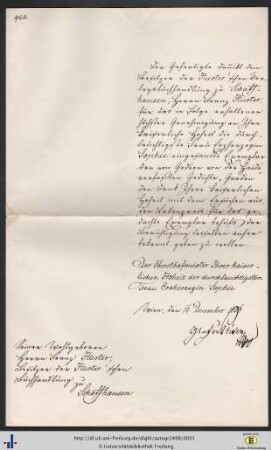 Der Gefertigte dankt dem
Besitzer der Hurter'schen Ver-
lagsbuchhandlung zu Schaff-
hausen, Herrn Franz Hurter
für das in Folge erhaltener
höchster Genehmigung an Ihre
kaiserliche Hoheit die durch-
lauchtigste Frau Erzherzogin
Sophie eingesandte Exemplar
der von
verfaßten Gedichte,
den Dank Ihrer kaiserlichen
Hoheit mit dem Ersuchen
den Ladenpreis für das ge-
dachte Exemplar behufs der
Berichtigung desselben anher
bekannt geben zu wollen.
Der Obersthofmeister Ihrer kaiser-
lichen Hoheit der durchlauchtigsten
Frau Erzherzogin Sophie
Wien, den 18 Dezember
Seiner Wohlgeboren
Herrn Franz Hurter,
Besitzer der Hurter'schen
Buchhandlung zu
Schaffhausen
http://dl.ub.uni-freiburg.de/diglit/autogr3498/0003
© Universitätsbibliothek Freiburg